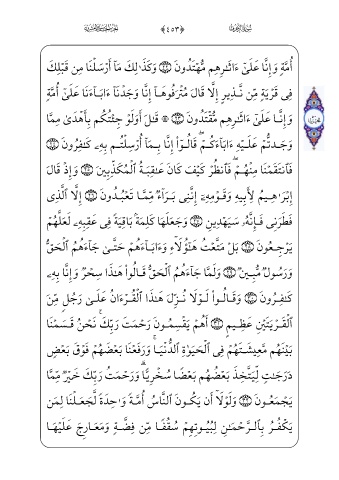 سورة الزخرف ﴿٤٥٣﴾
أُمَّةٍ وَإِنَّا عَلَىٰٓ ءَاثَٰرِهِم مُّهْتَدُونَ ٢٢ وَكَذَٰلِكَ مَآ أَرْسَلْنَا مِن قَبْلِكَ
فِى قَرْيَةٍ مِّن نَّذِيرٍ إِلَّا قَالَ مُتْرَفُوهَآ إِنَّا وَجَدْنَآ ءَابَآءَنَا عَلَىٰٓ أُمَّةٍ
وَإِنَّا عَلَىٰٓ ءَاثَٰرِهِم مُّقْتَدُونَ ٢٣ ۞ قَٰلَ أَوَلَوْ جِئْتُكُم بِأَهْدَىٰ مِمَّا
وَجَدتُّمْ عَلَيْهِ ءَابَآءَكُمْ ۖ قَالُوٓا۟ إِنَّا بِمَآ أُرْسِلْتُم بِهِۦ كَٰفِرُونَ ٢٤
فَٱنتَقَمْنَا مِنْهُمْ ۖ فَٱنظُرْ كَيْفَ كَانَ عَٰقِبَةُ ٱلْمُكَذِّبِينَ ٢٥ وَإِذْ قَالَ
إِبْرَٰهِيمُ لِأَبِيهِ وَقَوْمِهِۦٓ إِنَّنِى بَرَآءٌ مِّمَّا تَعْبُدُونَ ٢٦ إِلَّا ٱلَّذِى
فَطَرَنِى فَإِنَّهُۥ سَيَهْدِينِ ٢٧ وَجَعَلَهَا كَلِمَةًۢ بَاقِيَةً فِى عَقِبِهِۦ لَعَلَّهُمْ
يَرْجِعُونَ ٢٨ بَلْ مَتَّعْتُ هَٰٓؤُلَآءِ وَءَابَآءَهُمْ حَتَّىٰ جَآءَهُمُ ٱلْحَقُّ
وَرَسُولٌ مُّبِينٌ ٢٩ وَلَمَّا جَآءَهُمُ ٱلْحَقُّ قَالُوا۟ هَٰذَا سِحْرٌ وَإِنَّا بِهِۦ
كَٰفِرُونَ ٣٠ وَقَالُوا۟ لَوْلَا نُزِّلَ هَٰذَا ٱلْقُرْءَانُ عَلَىٰ رَجُلٍ مِّنَ
ٱلْقَرْيَتَيْنِ عَظِيمٍ ٣١ أَهُمْ يَقْسِمُونَ رَحْمَتَ رَبِّكَ ۚ نَحْنُ قَسَمْنَا
بَيْنَهُم مَّعِيشَتَهُمْ فِى ٱلْحَيَوٰةِ ٱلدُّنْيَا ۚ وَرَفَعْنَا بَعْضَهُمْ فَوْقَ بَعْضٍ
دَرَجَٰتٍ لِّيَتَّخِذَ بَعْضُهُم بَعْضًا سُخْرِيًّا ۗ وَرَحْمَتُ رَبِّكَ خَيْرٌ مِّمَّا
يَجْمَعُونَ ٣٢ وَلَوْلَآ أَن يَكُونَ ٱلنَّاسُ أُمَّةً وَٰحِدَةً لَّجَعَلْنَا لِمَن
يَكْفُرُ بِٱلرَّحْمَٰنِ لِبُيُوتِهِمْ سُقُفًا مِّن فِضَّةٍ وَمَعَارِجَ عَلَيْهَا